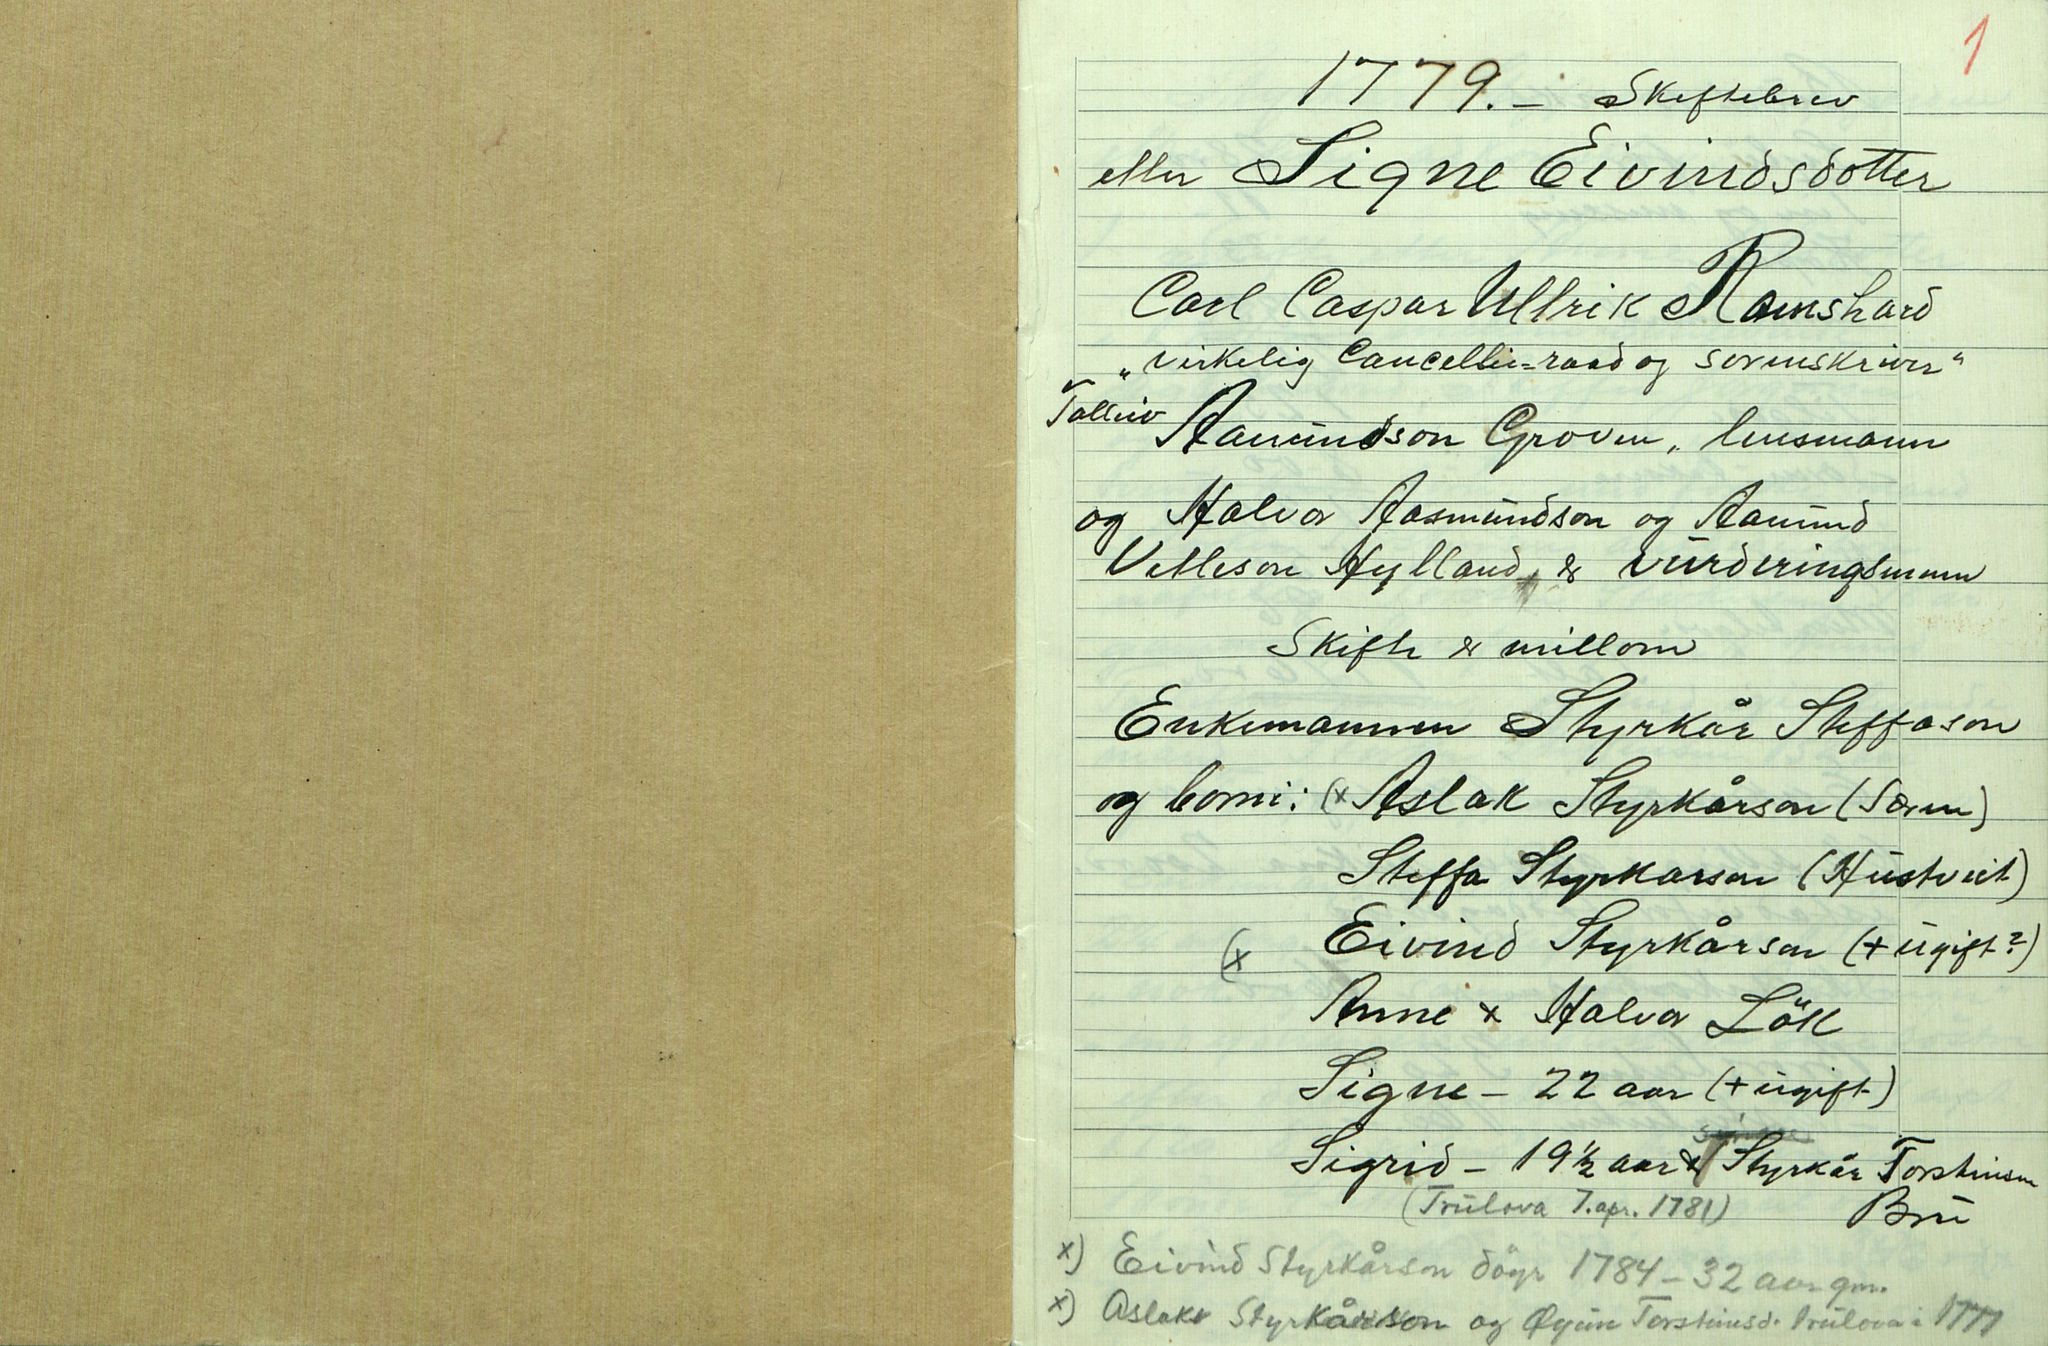 1
1779. – Skiftebrev
etter Signe Eivindsdotter
Carl Caspar Ullrik Ramshard
„virkelig Cancellie=raad og sorenskriver"
Talleiv Aamundson Groven, lensmann
og Halvor Aasmundson og Aamund
Vetleson Hylland, er vurderingsmenn
Skifte er millom
Enkemannen Styrkår Steffason
og borni: (x Aslak Styrkårson (Særen)
Steffa Styrkarson (Hustveit)
(x Eivind Styrkårson (+ ugift?)
Anne x Halvor Lök
Signe – 22 aar (+ ugift)
Sigrid – 19½ aar x Styrkår Torsteinson
(Trulova 7. apr. 1781) Bru
x) Eivind Styrkårson döyr 1784 – 32 aar gm.
x) Aslak Styrkårson og Øyun Torsteinsd. trulova i 1777